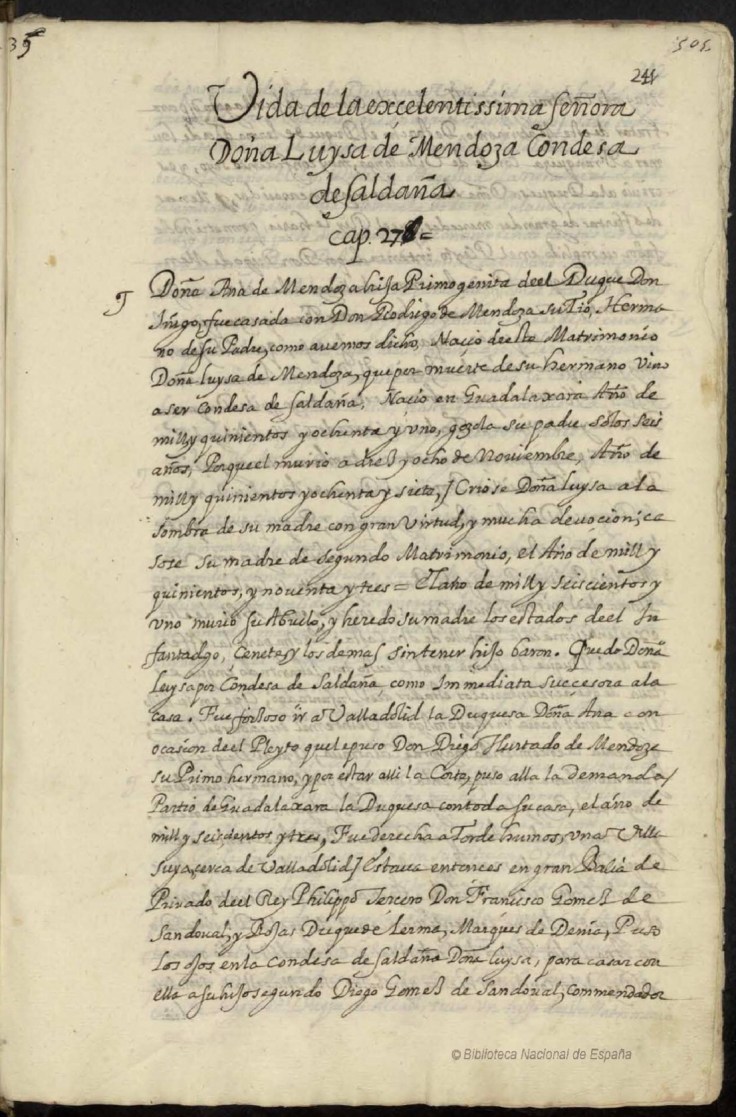 35
505
241
Vida de la excelentissima señora
Doña Luysa de Mendoza Condesa
de Saldaña
cap. 27
Doña Ana de Mendoza hija Primogenita de el Duque Don
Iñigo, fue casada con Don Rodrigo de Mendoza su Tio, Herma
no de su Padre, como auemos dicho, Nacio de este Matrimonio
Doña luysa de Mendoza, que por muerte de su hermano vino
a ser condesa de saldaña, Nacio en Guadalaxara Año de
mill y quinientos y ochenta y vno, gozola su padre solos seis
años, Porque el murio a diez y ocho de Noviembre, Año de
mill y quinientos y ochenta y siete, / Criose Doña luysa a la
sombra de su madre con gran virtud, y mucha devocion; ca
sose su madre de segundo Matrimonio, el Año de mill y
quinientos, y noventa y tres = El año de mill y seiscientos y
vno murio su Abuelo, y heredo su madre los estados de el In
fantadgo, Cenete, y los demas sin tener hijo baron. Quedo Doña
Luysa por Condesa de Saldaña, como Immediata successora a la
casa. Fue forzoso ir a Valladolid la Duquesa Doña Ana con
ocasion de el Pleyto que le puso Don Diego Hurtado de Mendoza
su Primo hermano, y por estar alli la Corte, puso alla la demanda /
Partio de Guadalaxara la Duquesa con toda su casa, el año de
mill y seiscientos y tres, Fue derecha a Tordehumos, vna Villa
suya, cerca de Valladolid / Estava entonces en gran
Privado de el Rey Philippo Tercero Don Francisco Gomez de
Sandoual, y Rojas Duque de Lerma, Marques de Denia, Puso
los ojos en la Condesa de saldaña Doña luysa, para casar con
ella a su hijo segundo Diego Gomez de Sandoual, Commendador
© Biblioteca Nacional de España